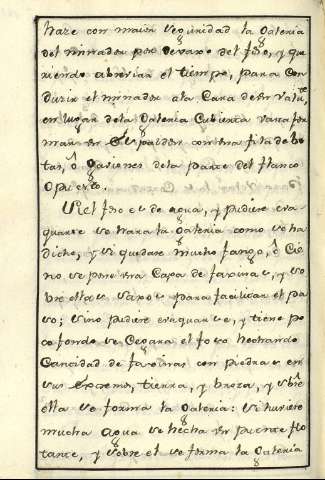 haze con maior seguridad la Galeria
del minador por devaxo del foso, y que
riendo abreviar el tiempo, para con
ducir el minador a la Cara de un Valu.te
en lugar de la Galeria Cubierta vasta for
mar un Espaldon con una fila de bo
tas, o Gaviones de la parte del flanco
Opuesto.
Si el foso es de agua, y pudiere esa
guarse se hara la Galeria como se ha
dicho, y si quedare mucho fango, o Cie
no se pone una Capa de faxina, y so
bre ella sa para facilitar el pa
so; sino pudiere esaguarse, y tiene po
co fondo se Cegara el foso hechando
Cantidad de faxinas con piedras en
sus Extremos, tierra, y broza, y sobre
ella se forma la Galeria: si huviere
mucha agua se hecha un puente flo
tante, y sobre el se forma la Galeria